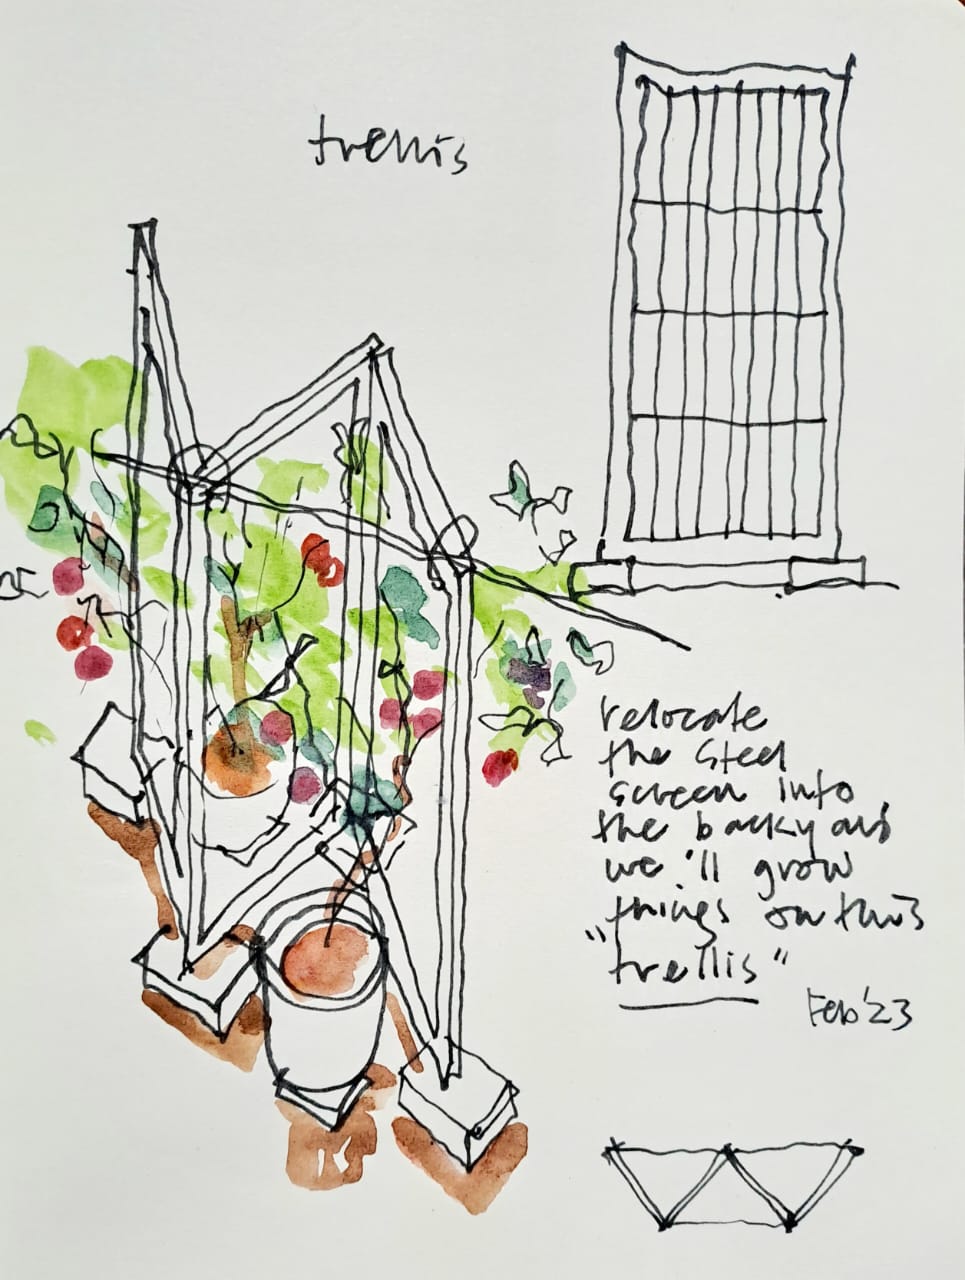 trellis
relocate
the steel
screen into
the backyard
we'll grow
things on this
"trellis"
Feb '23